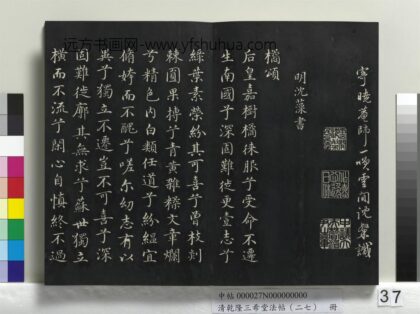 远方书画网-www.yfshuhua.com
曉菴師一 雲間沈粲識
明沈藻書
橘頌
后皇嘉樹橘徠服兮受命不遷
生南國兮深固難徙更壹志兮
綠葉素榮紛其可喜兮曾枝剡
棘圓果摶兮青黃雜糅文章爛
兮精色内白類任道兮紛緼宜
脩姱而不醜兮嗟尔幼志有以
異兮獨立不遷豈不可喜兮深
固難徙廓其無求兮蘇世獨立
橫而不流兮閉心自慎終不過
中帖 000027N000000000
清乾隆三希堂法帖（二七） 冊
37